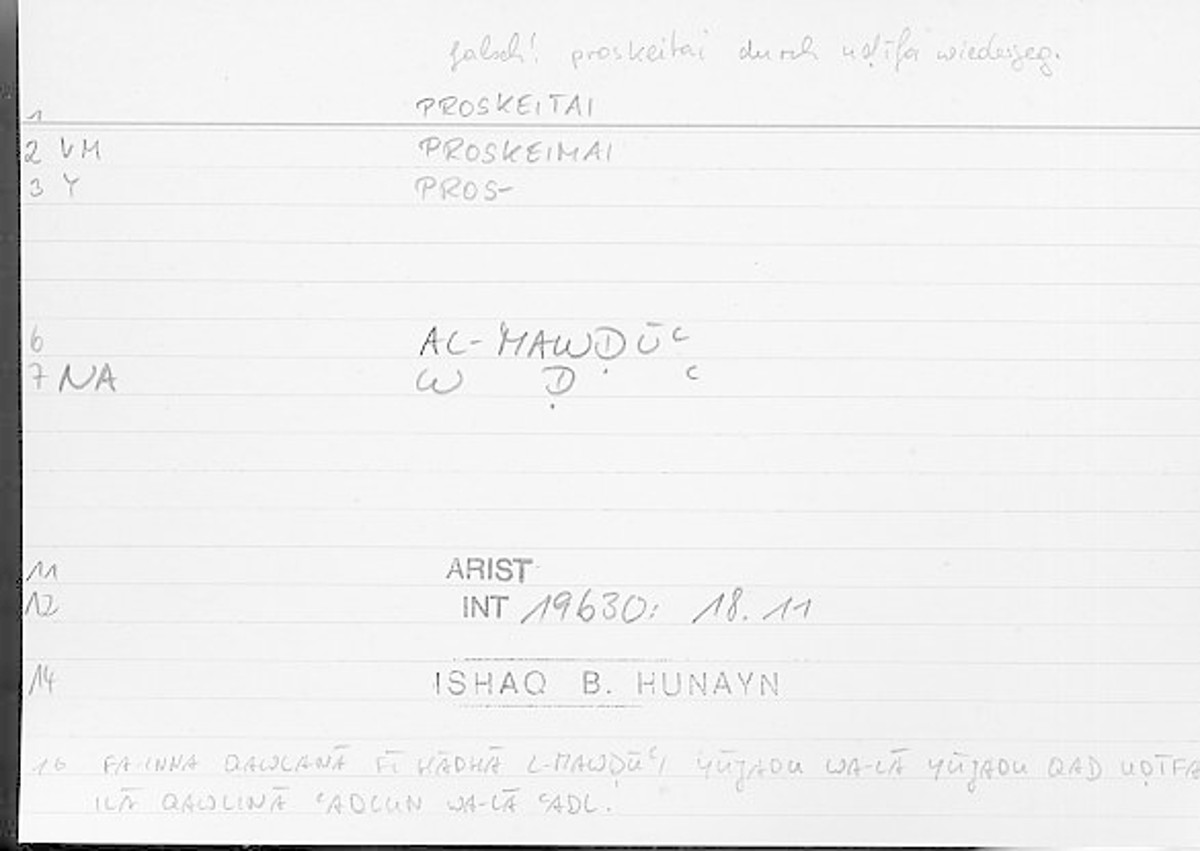 falsch! proskeitai durch uḍīfa wiedergeg.
1 PROSKEITAI
2 VM PROSKEIMAI
3 Y PROS-
6 AL-MAWḌŪʿ
7 NA W Ḍ ʿ
11 ARIST
12 INT 19630: 18.11
14 ISHAQ B. HUNAYN
16 FA-INNA QAWLANĀ FĪ HĀDHĀ L-MAWḌŪʿI YŪJADU WA-LĀ YŪJADU QAD UḌĪFA
ILĀ QAWLINĀ ʿADLUN WA-LĀ ʿADL.